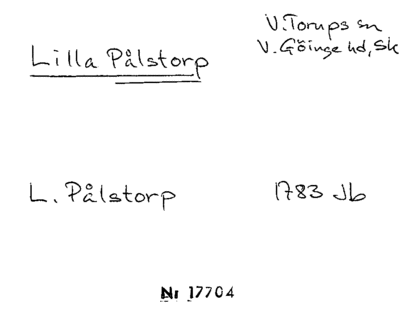 Lilla Pålstorp
V. Torups sn
V. Göinge hd, Sk
L. Pålstorp
1783 Jb
Nr 17704